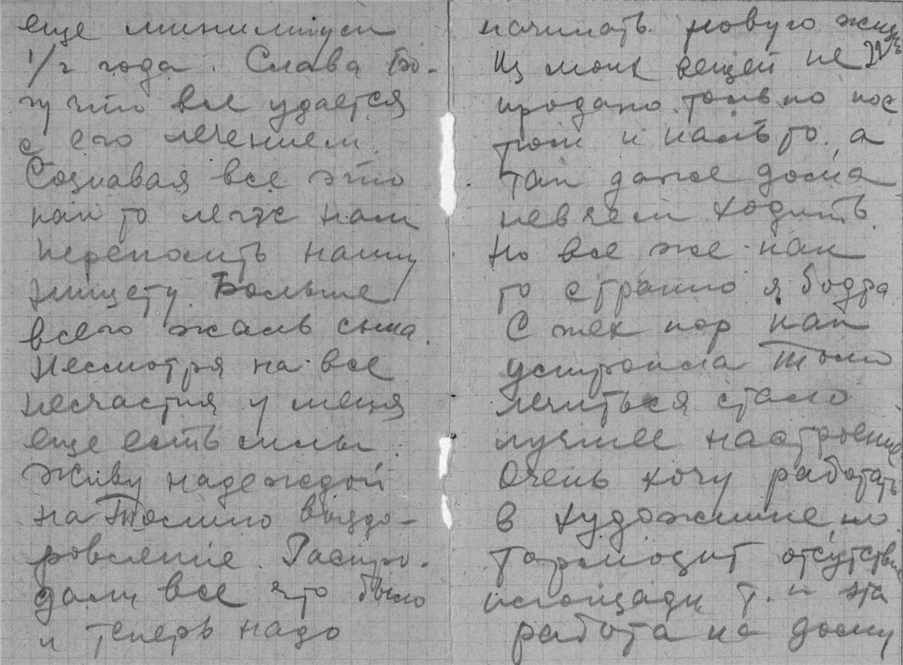 еще минимпум
1/2 года. Слава Бо-
гу что все удается
с его лечением.
Сознавая все это
как то легче нам
переносить нашу
нищету. Больше
всего жаль сына.
Несмотря на все
несчастия у меня
еще есть силы.
Живу надеждой
на Толино выздо-
ровление. Распро-
дали все что было
и теперь надо
начинать новую жизнь
Из моих вещей не
продано только кос
тюм и пальто, а
так даже дома
не в чем ходить.
Но все же как
то странно я бодра
С тех пор как
устроила Толю
лечиться стало
лучшее настроение
Очень хочу работать
в худ но
тормозит отсутствие
площади т.к эта
работа на дому